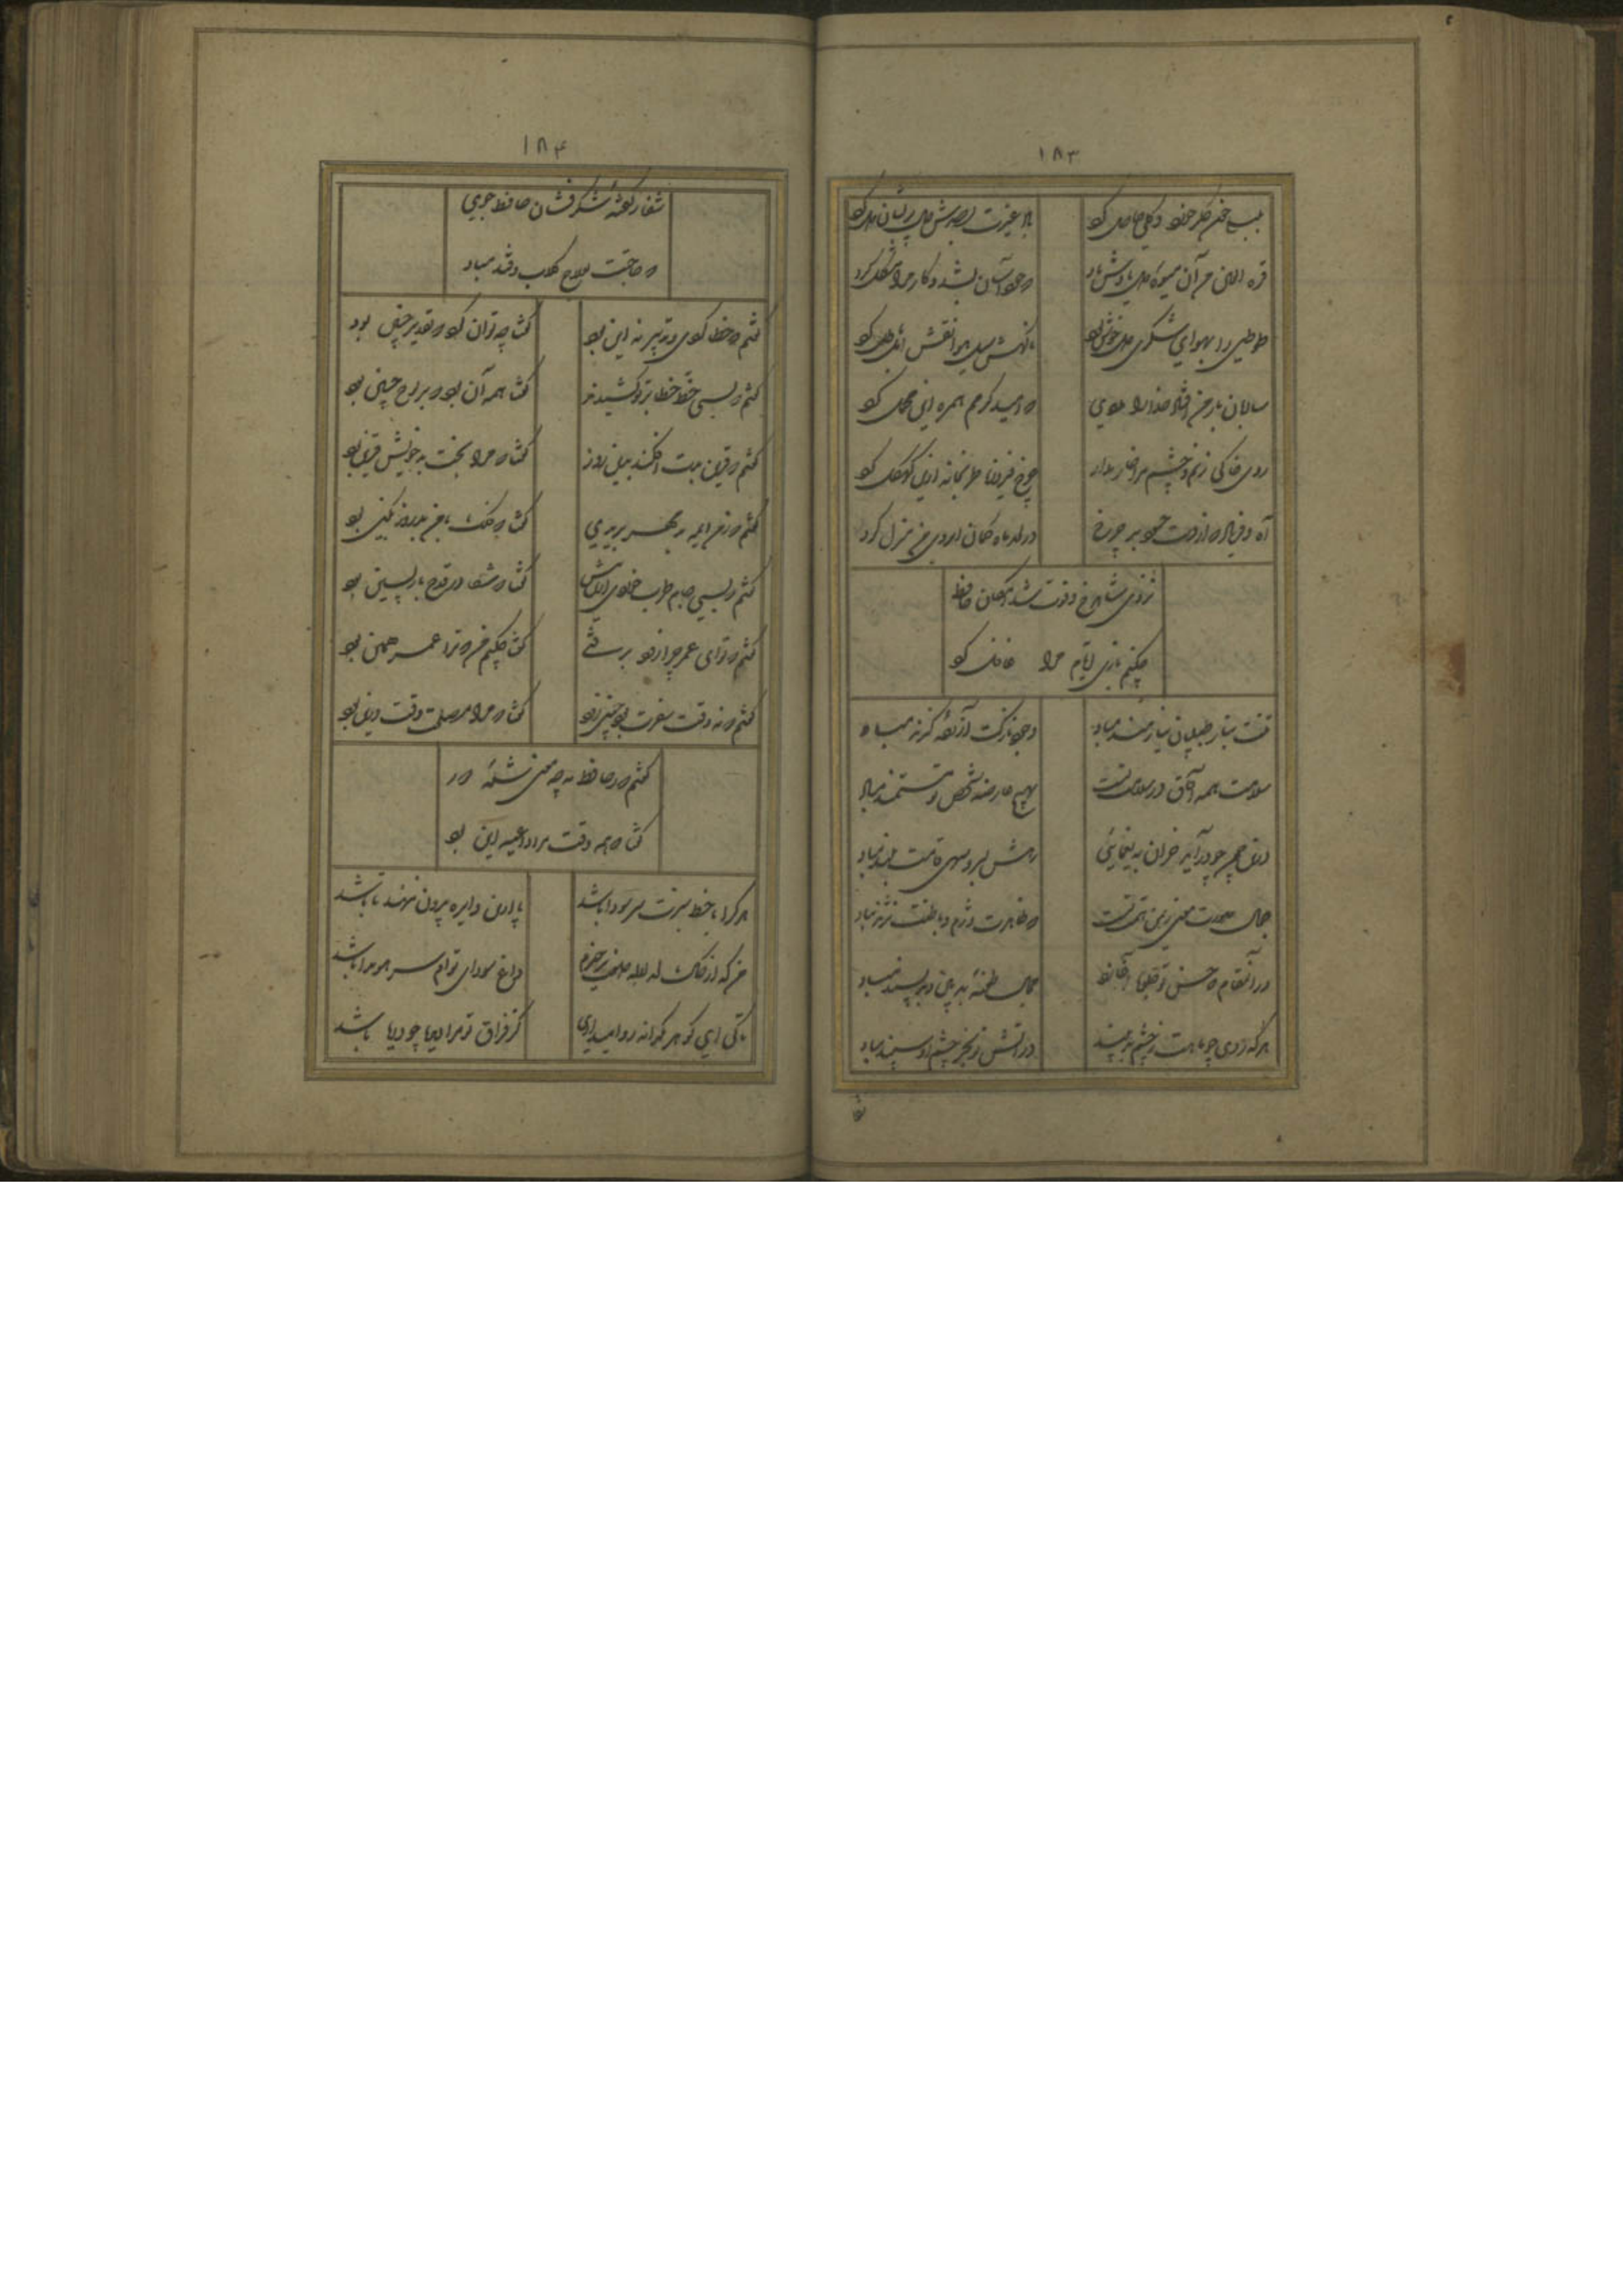 ۱۸۳
بلبلی خون جگر خورد و گلی حاصل کرد
باد غیرت بصدش حال پریشان دل کرد
قرة العین من آن میوه دل یادش باد
که خود آسان بشد و کار مرا مشکل کرد
طوطیی را بهوای شکری دل خوش بود
ناگهش سیل فنا نقش امل باطل کرد
ساربان بار من افتاد خدا را مددی
که امید کرمم همره این محمل کرد
روی خاکی و نم چشم مرا خوار مدار
چرخ فیروزه طربخانه ازین کهگل کرد
آه و فریاد که از چشم حسود مه چرخ
در لحد ماه کمان ابروی من منزل کرد
نزدی شاه رخ و فوت شد امکان حافظ
چکنم بازی ایام مرا غافل کرد
تنت بناز طبیبان نیازمند مباد
وجود نازکت آزرده گزند مباد
سلامت همه آفاق در سلامت تست
بهیچ عارضه شخص تو مستمند مباد
درین چمن چو درآید خزان به یغمائی
رهش بسرو سهی قامت بلند مباد
جمال صورت و معنی ز یمن همت تست
که ظاهرت دژم و باطنت نژند مباد
در آنمقام که حسن تو جلوه آغازد
مجال طعنهٔ بدبین و بدپسند مباد
هر که روی چو ماهت بچشم بد بیند
در آتش تو بجز چشم او سپند مباد
شفا
۱۸۴
شفا ز گفتهٔ شکرفشان حافظ جوی
که حاجت بعلاج گلاب و قند مباد
گفتم که خطا کردی و تدبیر نه این بود
گفتا چه توان کرد که تقدیر چنین بود
گفتم که بسی خط خطا بر تو کشیدند
گفتا همه آن بود که بر لوح جبین بود
گفتم که قرین بدت افکند بدین روز
گفتا که مرا بخت بد خویش قرین بود
گفتم ز من ای ماه چرا مهر بریدی
گفتا که فلک با من بد روز بکین بود
گفتم که بسی جام طرب خوردی ازین پیش
گفتا که شفا در قدح بازپسین بود
گفتم که تو ای عمر چرا زود برفتی
گفتا چکنم عمر ترا عمر همین بود
گفتم که نه وقت سفرت بود چنین زود
گفتا که مرا مصلحت وقت درین بود
گفتم که ز حافظ به چه حجت شدهٔ دور
گفتا که همه وقت مرا داعیه این بود
هر کرا با خط سبزت سر سودا باشد
پا ازین دایره بیرون ننهد تا باشد
من که از خاک لحد لاله صفت برخیزم
داغ سودای توام سر سویدا باشد
تا کی ای گوهر یکدانه روا میداری
کز فراق تو مرا دیده چو دریا باشد